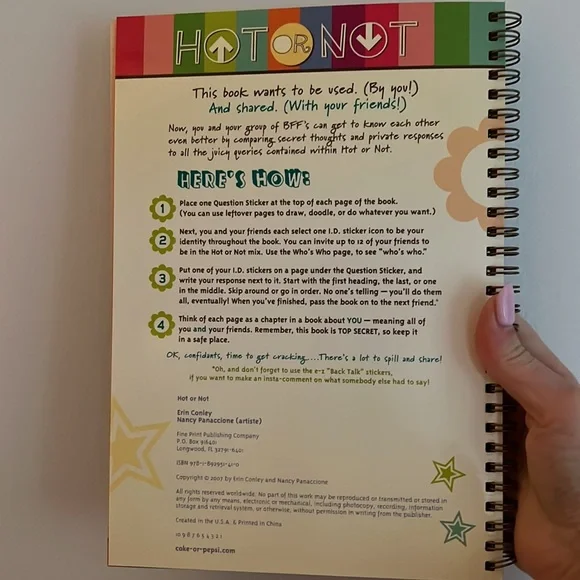 HOT OR NOT
This book wants to be used. (By you!)
And shared. (With your friends!)
Now, you and your group of BFF's can get to know each other
even better by comparing secret thoughts and private responses
to all the juicy queries contained within Hot or Not.
HERE'S HOW:
1 Place one Question Sticker at the top of each page of the book.
(You can use leftover pages to draw, doodle, or do whatever you want.)
2 Next, you and your friends each select one I.D. sticker icon to be your
identity throughout the book. You can invite up to 12 of your friends to
be in the Hot or Not mix. Use the Who's Who page, to see "who's who."
3 Put one of your I.D. stickers on a page under the Question Sticker, and
write your response next to it. Start with the first heading, the last, or one
in the middle. Skip around or go in order. No one's telling — you'll do them
all, eventually! When you've finished, pass the book on to the next friend.*
4 Think of each page as a chapter in a book about YOU — meaning all of
you and your friends. Remember, this book is TOP SECRET, so keep it
in a safe place.
OK, confidants, time to get cracking....There's a lot to spill and share!
*Oh, and don't forget to use the e-z "Back Talk" stickers,
if you want to make an insta-comment on what somebody else had to say!
Hot or Not
Erin Conley
Nancy Panaccione (artiste)
Fine Print Publishing Company
P.O. Box 916401
Longwood, FL 32791-6401
ISBN 978-1-892951-41-0
Copyright © 2007 by Erin Conley and Nancy Panaccione
All rights reserved worldwide. No part of this work may be reproduced or transmitted or stored in
any form by any means, electronic or mechanical, including photocopy, recording, information
storage and retrieval system, or otherwise, without permission in writing from the publisher.
Created in the U.S.A. & Printed in China
10 9 8 7 6 5 4 3 2 1
coke-or-pepsi.com